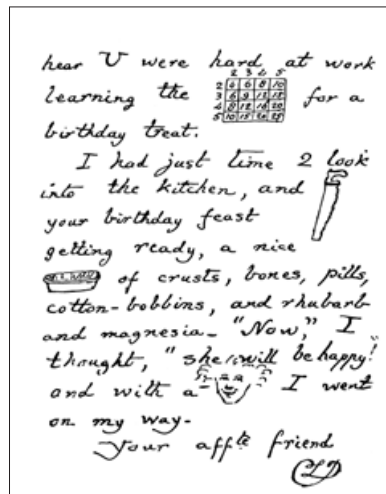 hear U were hard at work
2 3 4 5
learning the for a
2 4 6 8 10
3 6 9 12 15
4 8 12 16 20
5 10 15 20 25
birthday treat.
I had just time 2 look
into the kitchen, and
your birthday feast
getting ready, a nice
of crusts, bones, pills,
cotton-bobbins, and rhubarb
and magnesia- "Now," I
thought, "she will be happy!
and with a I went
on my way-
Your affte friend
CLD